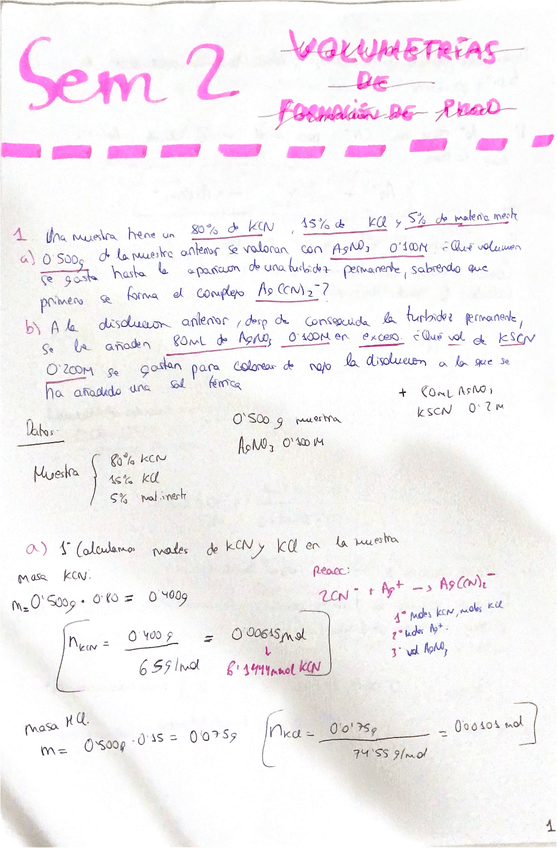 Sem 2
VOLUMETRÍAS
DE
FORMACIÓN DE PREC
1 Una muestra tiene un 80% de KCN, 15% de KCl y 5% de materia inerte
a) 0'500g de la muestra anterior se valoran con AgNO3 0'100M. ¿Qué volumen
se gasta hasta la aparición de una turbidez permanente, sabiendo que
primero se forma el complejo Ag(CN)2-?
b) A la disolución anterior, desp de conseguida la turbidez permanente,
se le añaden 80mL de AgNO3 0'100M en exceso. ¿Qué vol de KSCN
0'200M se gastan para colorear de rojo la disolución a la que se
ha añadido una sal férrica
+ 80mL AgNO3
KSCN 0'2M
Datos:
0'500 g muestra
AgNO3 0'100M
Muestra { 80% KCN
15% KCl
5% mat.inerte
a) 1º Calculamos moles de KCN y KCl en la muestra
masa KCN:
m=0'500g · 0'80 = 0'400g
Reacc:
2CN- + Ag+ → Ag(CN)2-
1º moles KCN, moles KCl
2º moles Ag+
3º vol AgNO3
nKCN = 0'400 g / 65g/mol = 0'00615mol
↓
6'1444mmol KCN
masa KCl.
m= 0'500g · 0'15 = 0'075g
nKCl = 0'075g / 74'55 g/mol = 0'00101 mol
1